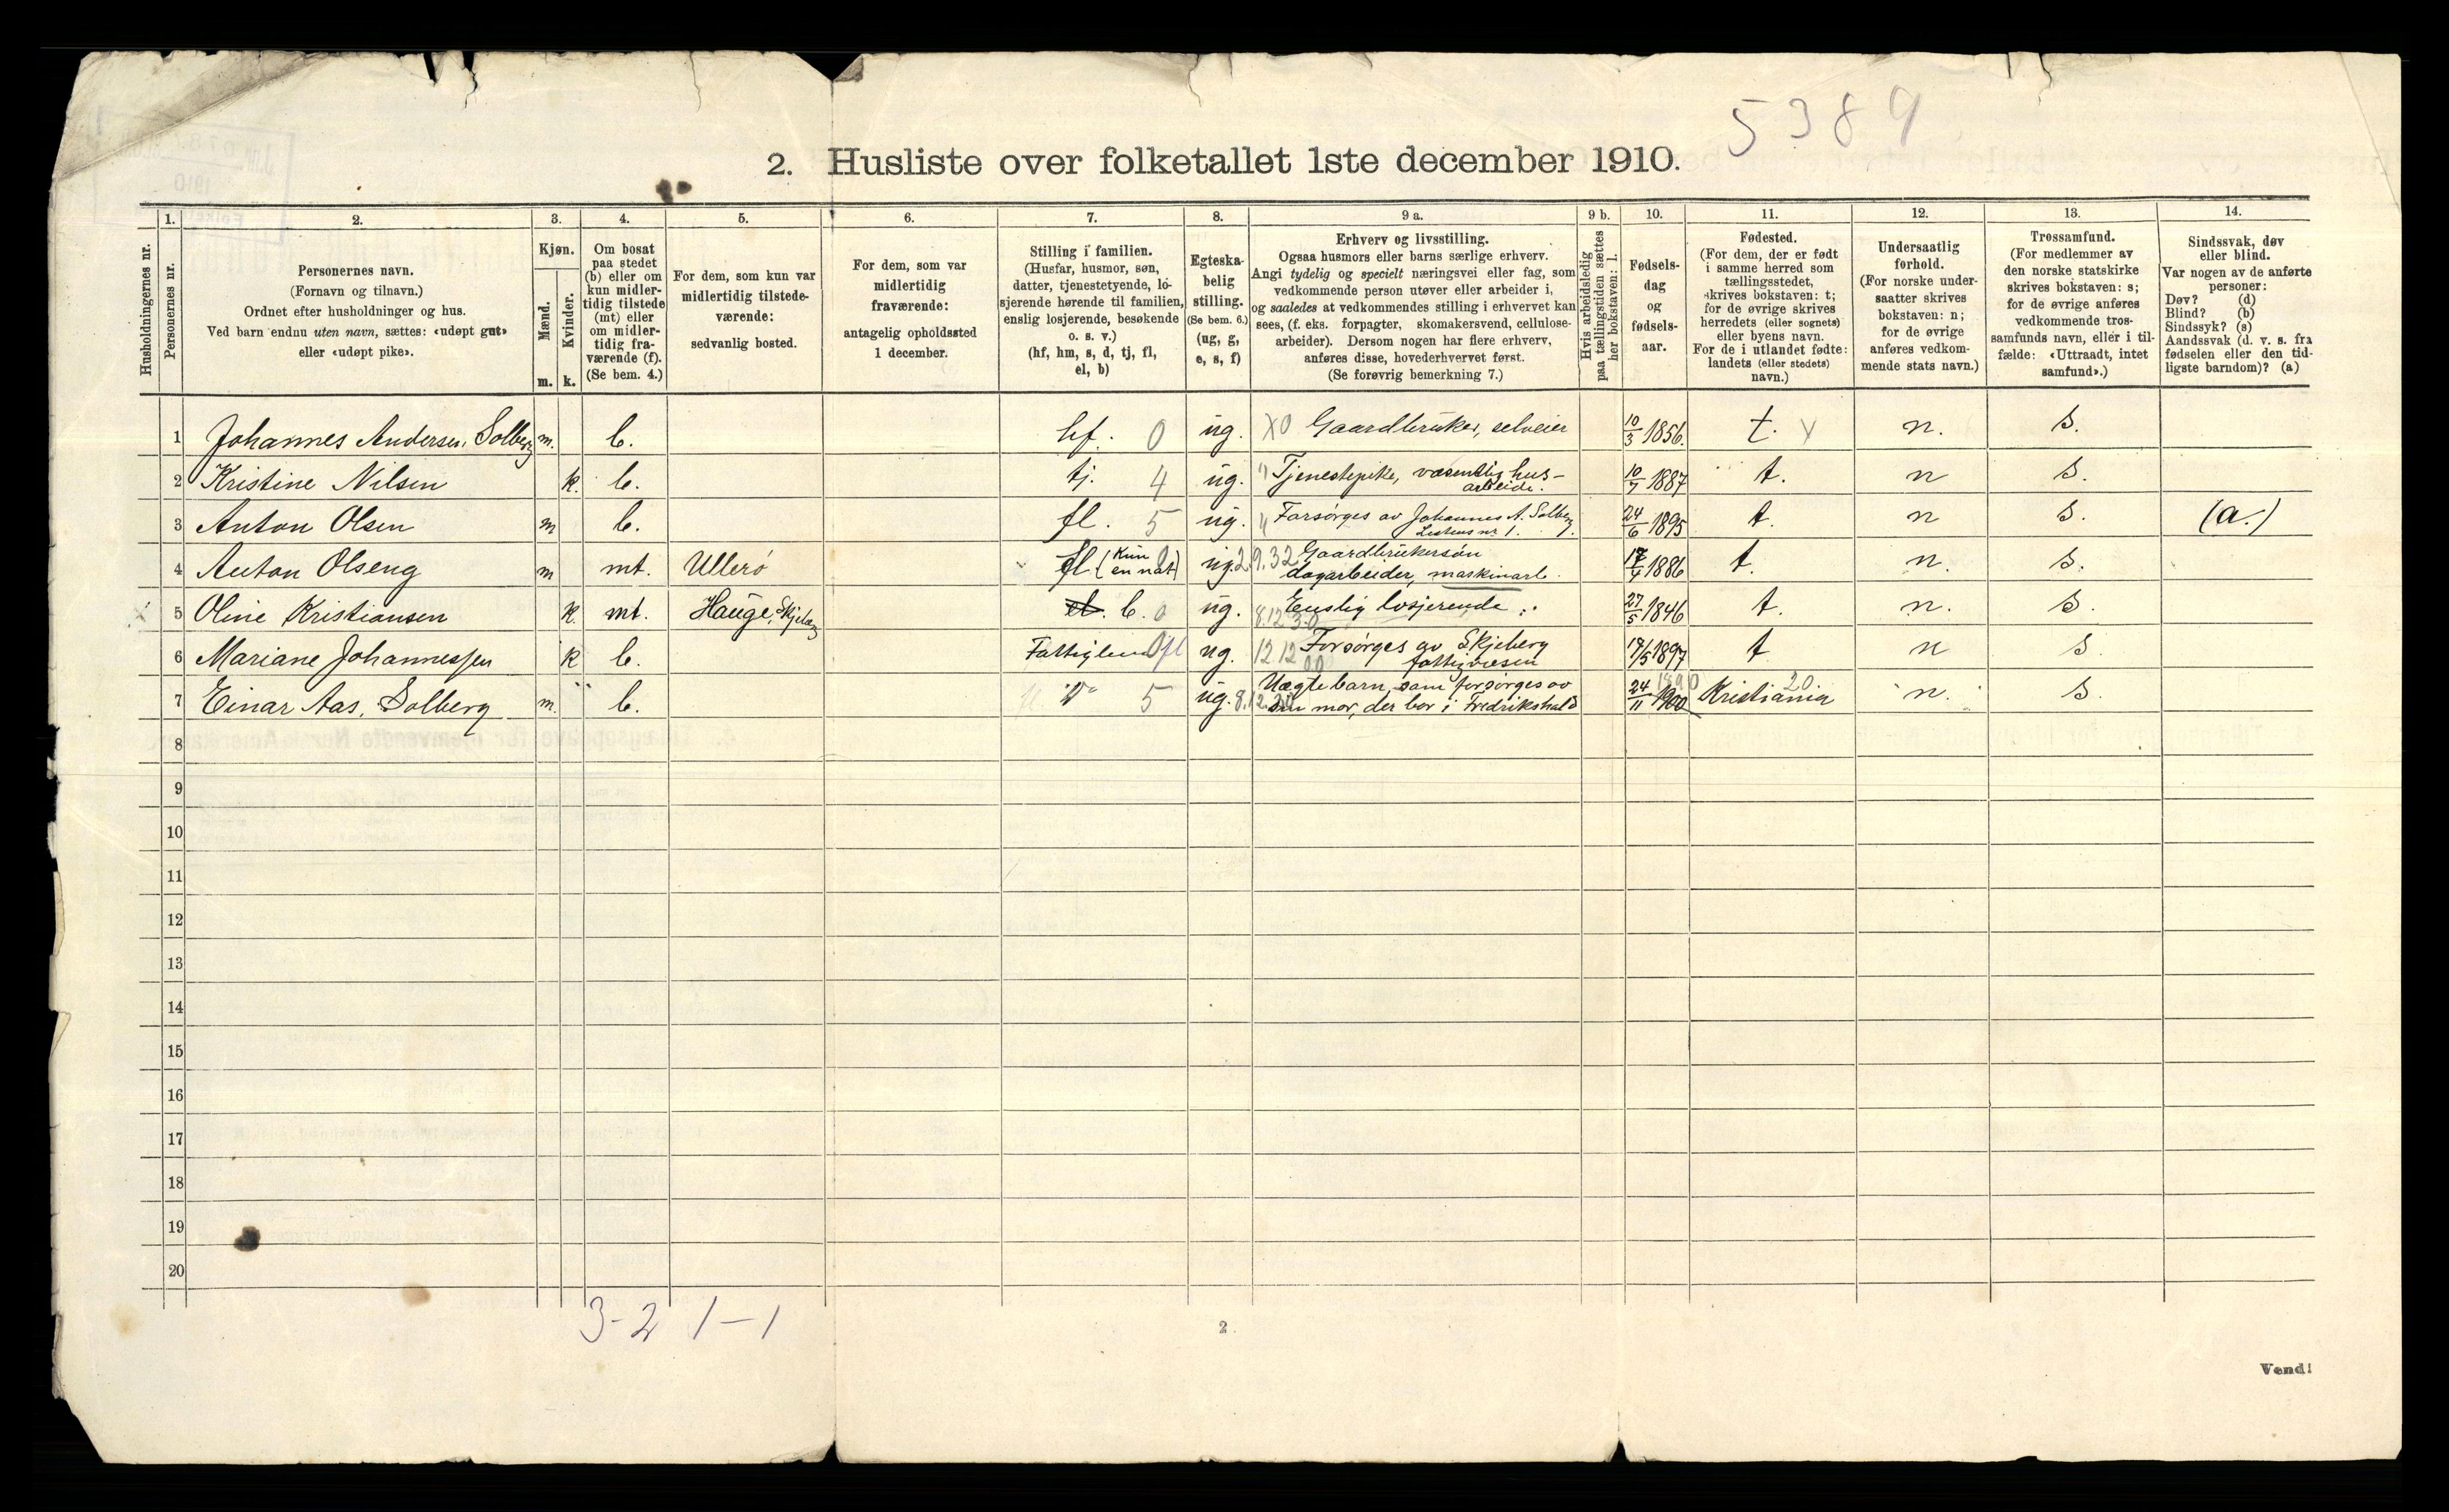 5389
2. Husliste over folketallet 1ste december 1910.
1. 2. 3. 4. 5. 6. 7. 8. 9 a. 9 b. 10. 11. 12. 13. 14.
Husholdningernes nr.
Personernes nr.
Personernes navn.
(Fornavn og tilnavn.)
Ordnet efter husholdninger og hus.
Ved barn endnu uten navn, sættes: «udøpt gut»
eller «udøpt pike».
Kjøn.
Mænd.
m.
Kvinder.
k.
Om bosat
paa stedet
(b) eller om
kun midler-
tidig tilstede
(mt) eller
om midler-
tidig fra-
værende (f).
(Se bem. 4.)
For dem, som kun var
midlertidig tilstede-
værende:
sedvanlig bosted.
For dem, som var
midlertidig
fraværende:
antagelig opholdssted
1 december.
Stilling i familien.
(Husfar, husmor, søn,
datter, tjenestetyende, lo-
sjerende hørende til familien,
enslig losjerende, besøkende
o. s. v.)
(hf, hm, s, d, tj, fl,
el, b)
Egteska-
belig
stilling.
(Se bem. 6.)
(ug, g,
e, s, f)
Erhverv og livsstilling.
Ogsaa husmors eller barns særlige erhverv.
Angi tydelig og specielt næringsvei eller fag, som
vedkommende person utøver eller arbeider i,
og saaledes at vedkommendes stilling i erhvervet kan
sees, (f. eks. forpagter, skomakersvend, cellulose-
arbeider). Dersom nogen har flere erhverv,
anføres disse, hovederhvervet først.
(Se forøvrig bemerkning 7.)
Hvis arbeidsledig
paa tællingstiden sættes
her bokstaven: l.
Fødsels-
dag
og
fødsels-
aar.
Fødested.
(For dem, der er født
i samme herred som
tællingsstedet,
skrives bokstaven: t;
for de øvrige skrives
herredets (eller sognets)
eller byens navn.
For de i utlandet fødte:
landets (eller stedets)
navn.)
Undersaatlig
forhold.
(For norske under-
saatter skrives
bokstaven: n;
for de øvrige
anføres vedkom-
mende stats navn.)
Trossamfund.
(For medlemmer av
den norske statskirke
skrives bokstaven: s;
for de øvrige anføres
vedkommende tros-
samfunds navn, eller i til-
fælde: «Uttraadt, intet
samfund».)
Sindssvak, døv
eller blind.
Var nogen av de anførte
personer:
Døv? (d)
Blind? (b)
Sindssyk? (s)
Aandssvak (d. v. s. fra
fødselen eller den tid-
ligste barndom)? (a)
1 Johannes Andersen, Solberg m. b. hf. 0 ug. X0 Gaardbruker, selveier 10/3 1856. t. n. s.
2 Kristine Nilsen k. b. tj. 4 ug. Tjenestepike, væsentlig hus-
arbeide. 10/7 1887 t. n s.
3 Anton Olsen m b. fl. 5 ug. Forsørges av Johannes A. Solberg
Listens nr 1. 24/6 1895 t. n s. (a.)
4 Anton Olseng m mt. Ullerö fl (Kun
en nat) ug. 2.9.32 Gaardbrukersön
dagarbeider, maskinarb. 17/4 1886 t. n. s.
5 Oline Kristiansen k. mt. Hauge, Skjeberg el. b. 0 ug. Enslig losjerende 27/5 1846 t. n. s.
8.12 30
6 Mariane Johannessen k b. Fattiglem fl ug. 12 12 00 Forsørges av Skjeberg
fattigvæsen 17/5 1897 t n s.
7 Einar Aas, Solberg m. b. 5 ug. Uægte barn, som forsørges av
sin mor, der bor i Fredrikshald 24/11 1900 1890 Kristiania 20. n. s.
8
9
10
11
12
13
14
15
16
17
18
19
20
3-2 1-1
2
Vend!